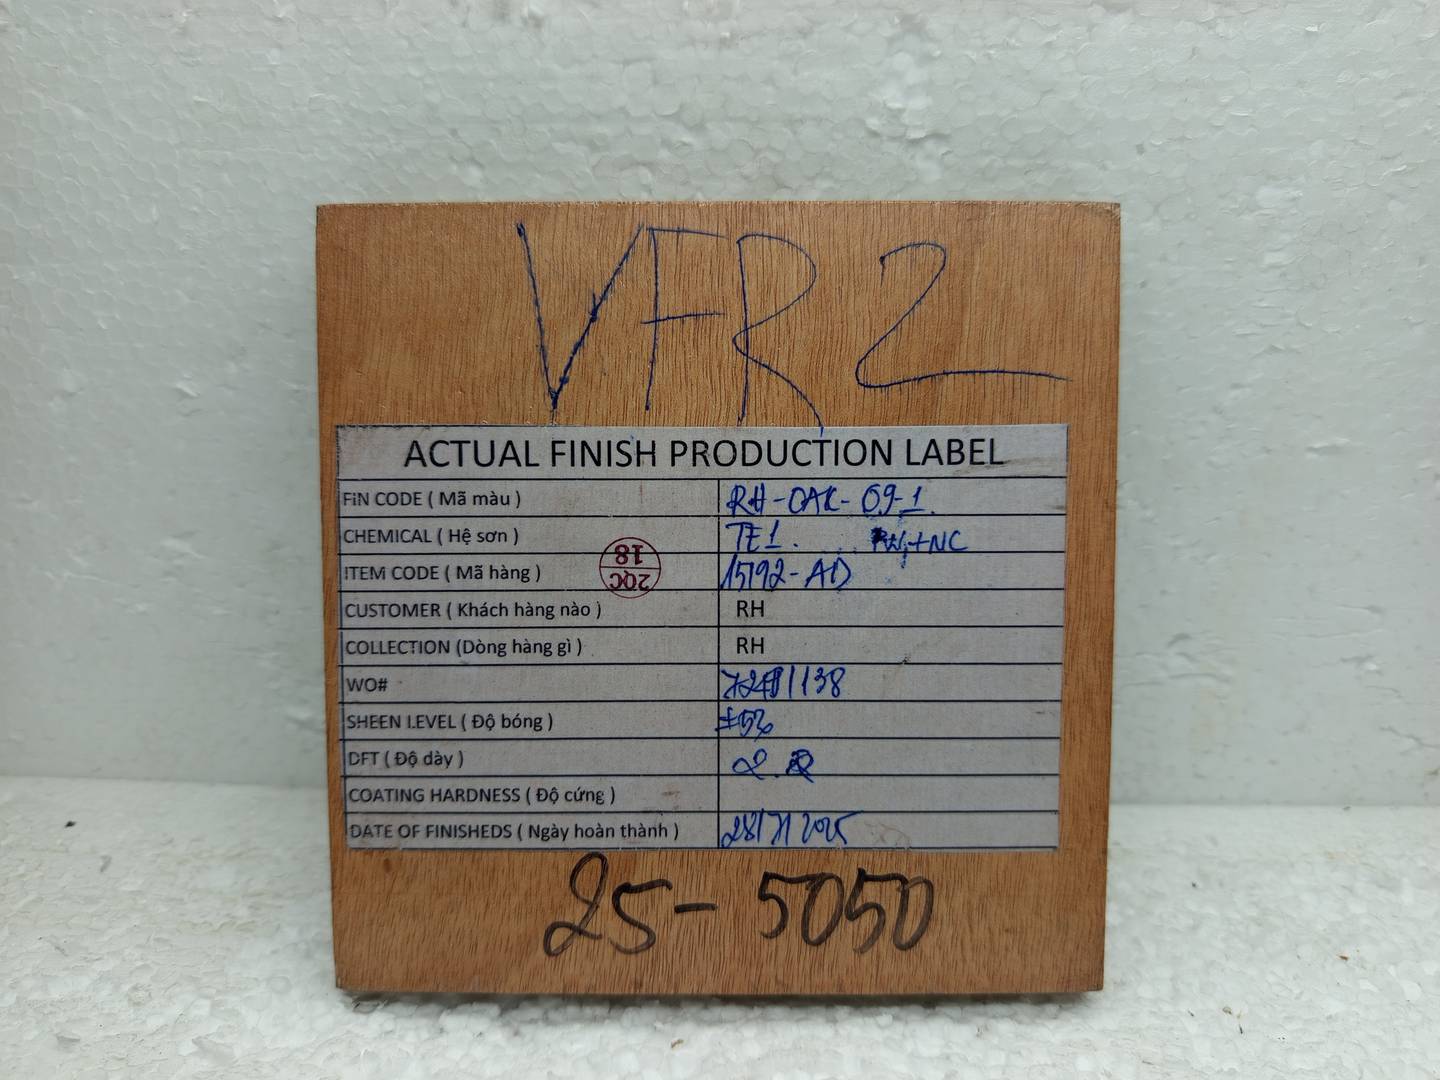 VFR 2
ACTUAL FINISH PRODUCTION LABEL
FIN CODE ( Mã màu ) RH-OAK-09-1.
CHEMICAL ( Hệ sơn ) TE1. +NC
ITEM CODE ( Mã hàng ) 15192-AD
2QC
18
CUSTOMER ( Khách hàng nào ) RH
COLLECTION (Dòng hàng gì ) RH
WO#
SHEEN LEVEL ( Độ bóng )
DFT ( Độ dày ) 2.2
COATING HARDNESS ( Độ cứng )
DATE OF FINISHEDS ( Ngày hoàn thành ) 28/7/2025
25-5050